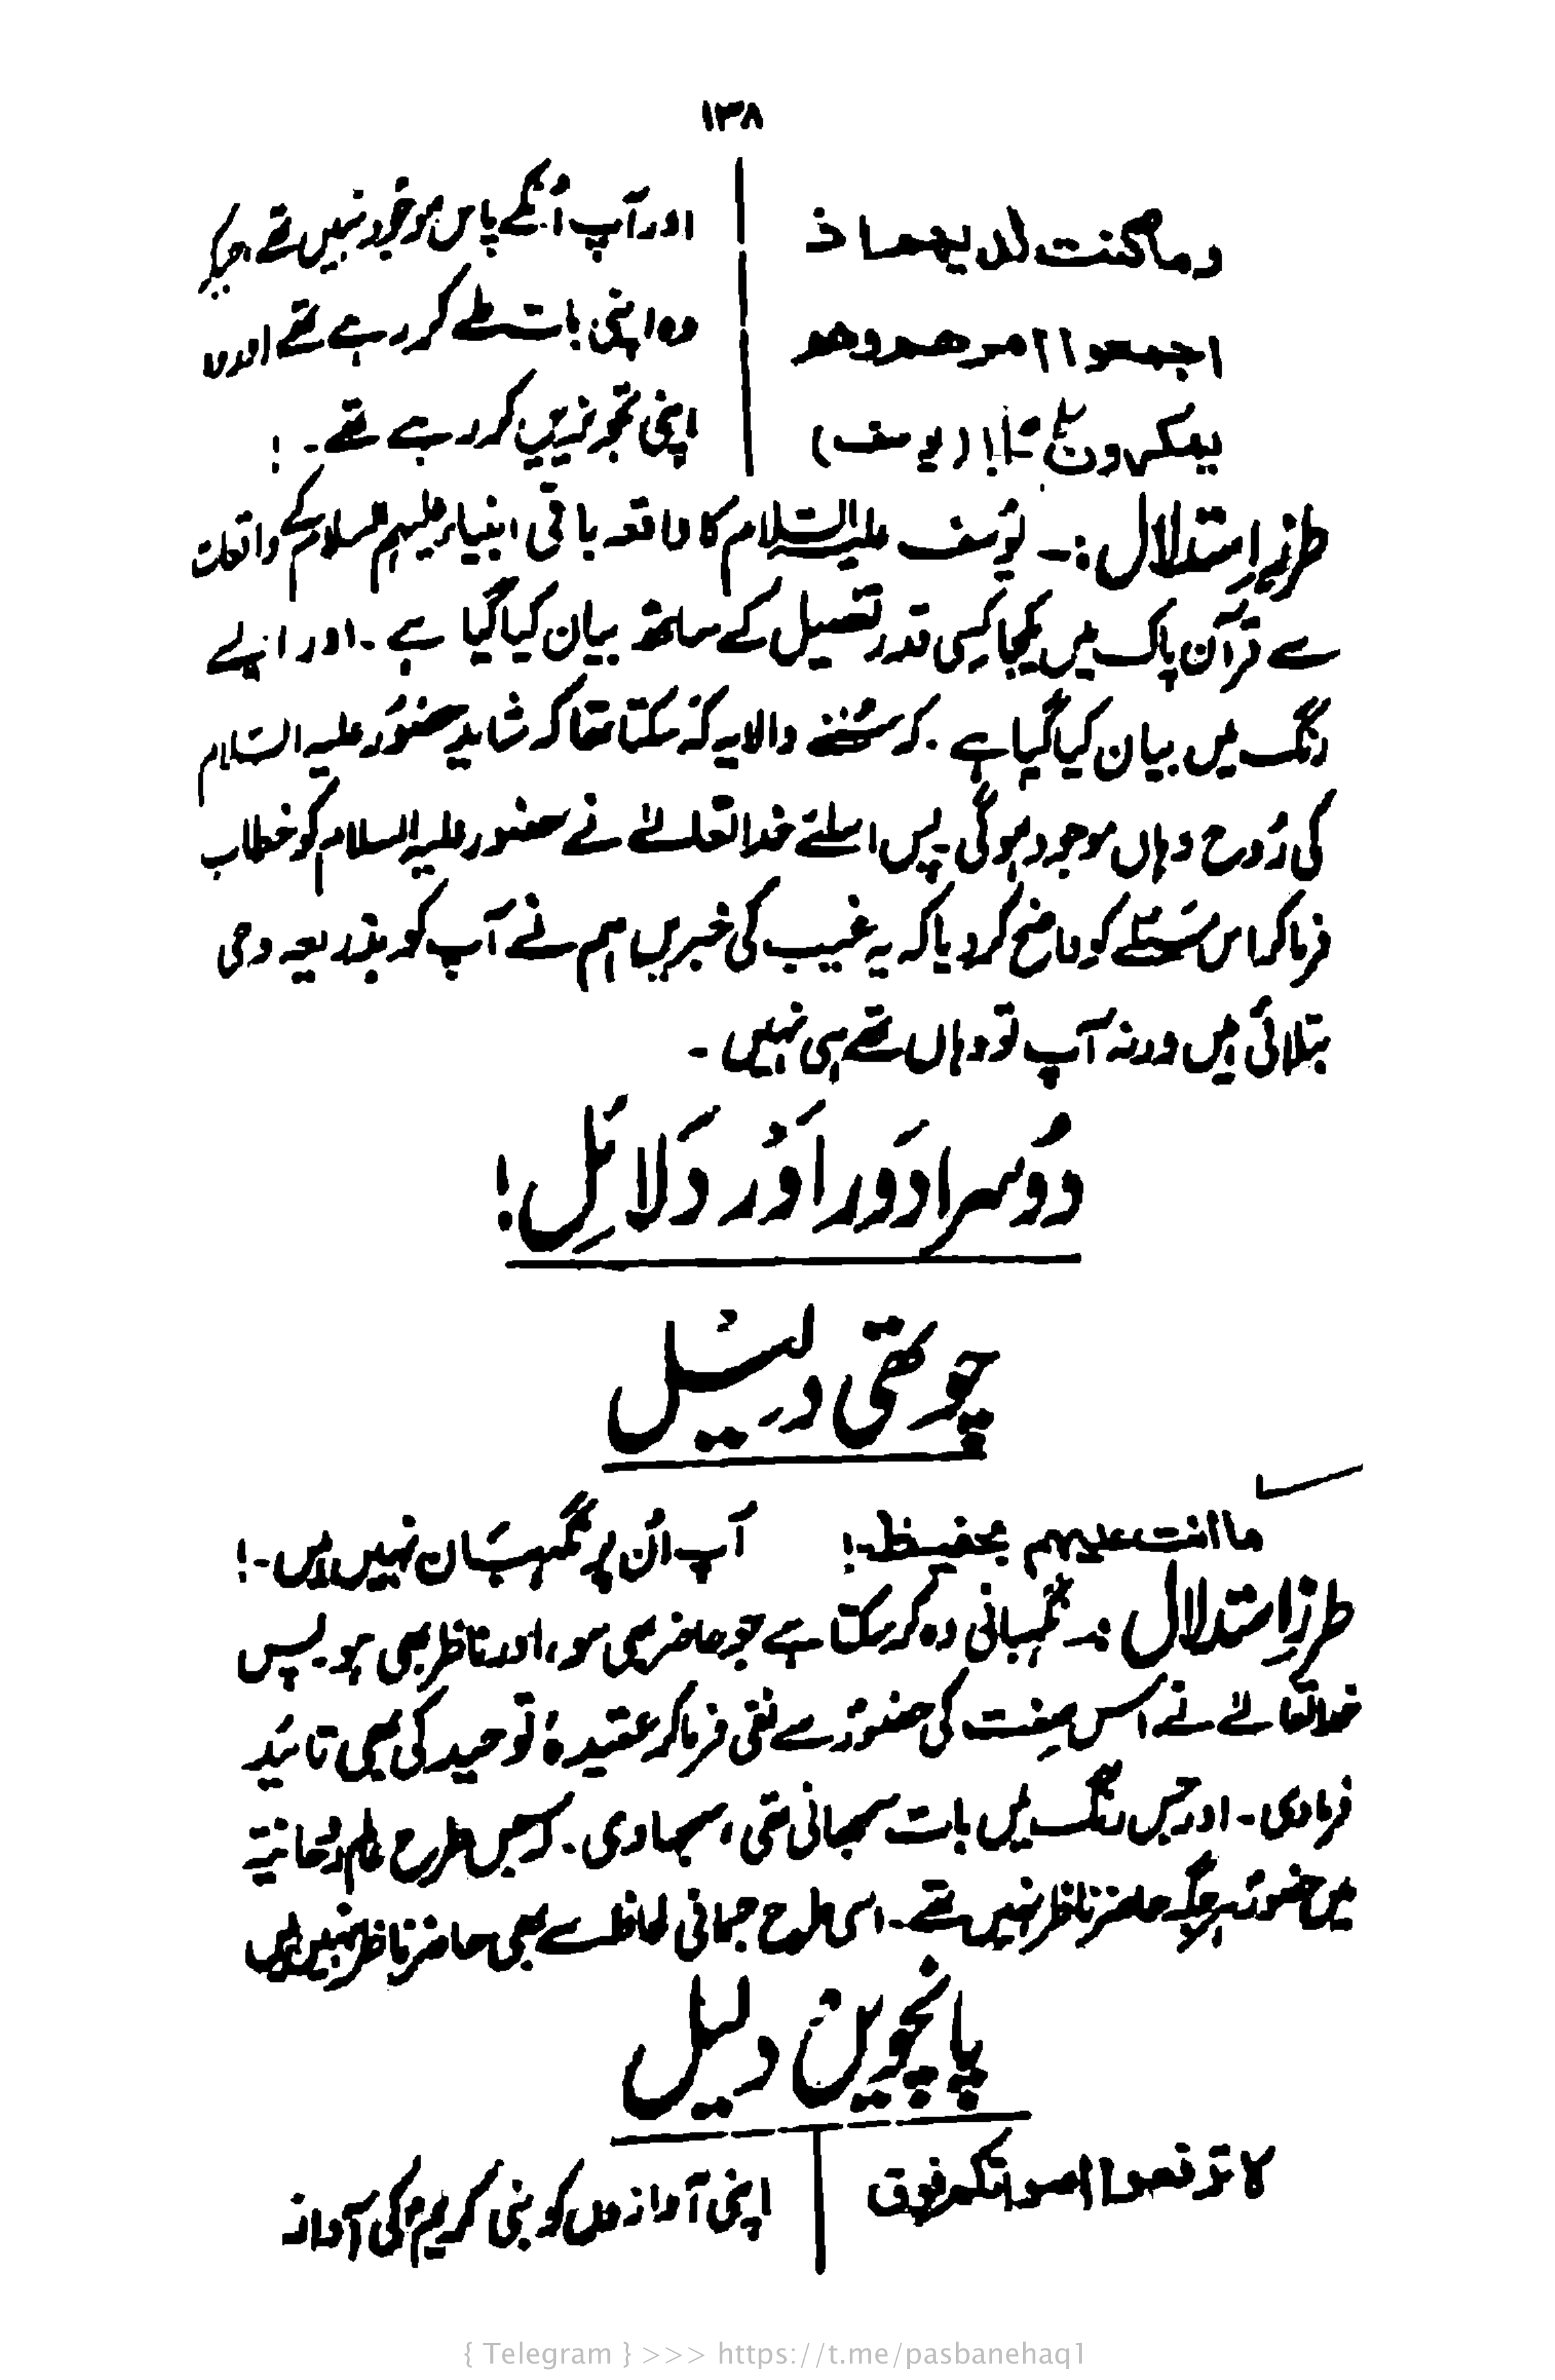 ۱۳۸
وما کنت لدیهم اذ
اجمعوا امرهم وهم
یمکرون پ۱۳ (یوسف)
اور آپ انکے پاس موجود نہیں تھے جبکہ
وہ اپنی بات طے کر رہے تھے اور
اپنی تجویزیں کر رہے تھے۔!
طرزِ استدلال :۔ یُوسف علیہ السّلام کا واقعہ باقی انبیاء علیہم السلام کے واقعات
سے قرآن پاک میں یکجا کسی قدر تفصیل کے ساتھ بیان کیا گیا ہے۔ اور ایسے
رنگ میں بیان کیا گیا ہے۔ کہ سُننے والا یہ کہہ سکتا تھا کہ شاید حضورؐ علیہ السّلام
کی رُوح وہاں موجود ہوگی پس اسلئے خدا تعالےٰ نے حضور علیہ السلام کو خطاب
فرما کر اس مسئلے کو واضح کر دیا کہ یہ غیب کی خبریں ہم نے آپ کو بذریعہ وحی
بتلائی ہیں ورنہ آپ تو وہاں تھے ہی نہیں ۔
دُوسرا دَور اَوْر دَلائل!
چوتھی دلیل
ما انت علیهم بحفیظ۔!
آپ ان پر نگہبان نہیں ہیں۔!
طرزِ استدلال :۔ نگہبانی وہ کر سکتا ہے جو حاضر بھی ہو، اور ناظر بھی ہو۔ پس
خدا تعالےٰ نے اس صِفت کی حضورؐ سے نفی فرما کر عقیدۂ توحید کی بھی تائید
فرما دی۔ اور جس رنگ میں بات سمجھانی تھی، سمجھا دی۔ کہ جس طرح عالم رُوحانیّت
میں حضورؐ ہر جگہ حاضر ناظر نہیں تھے۔ اسی طرح جسمانی لحاظ سے بھی حاضر ناظر نہیں ہیں
پانچویں دلیل
لا ترفعوا اصواتکم فوق
اپنی آوازوں کو نبی کریمؐ کی آواز
{ Telegram } >>> https://t.me/pasbanehaq1